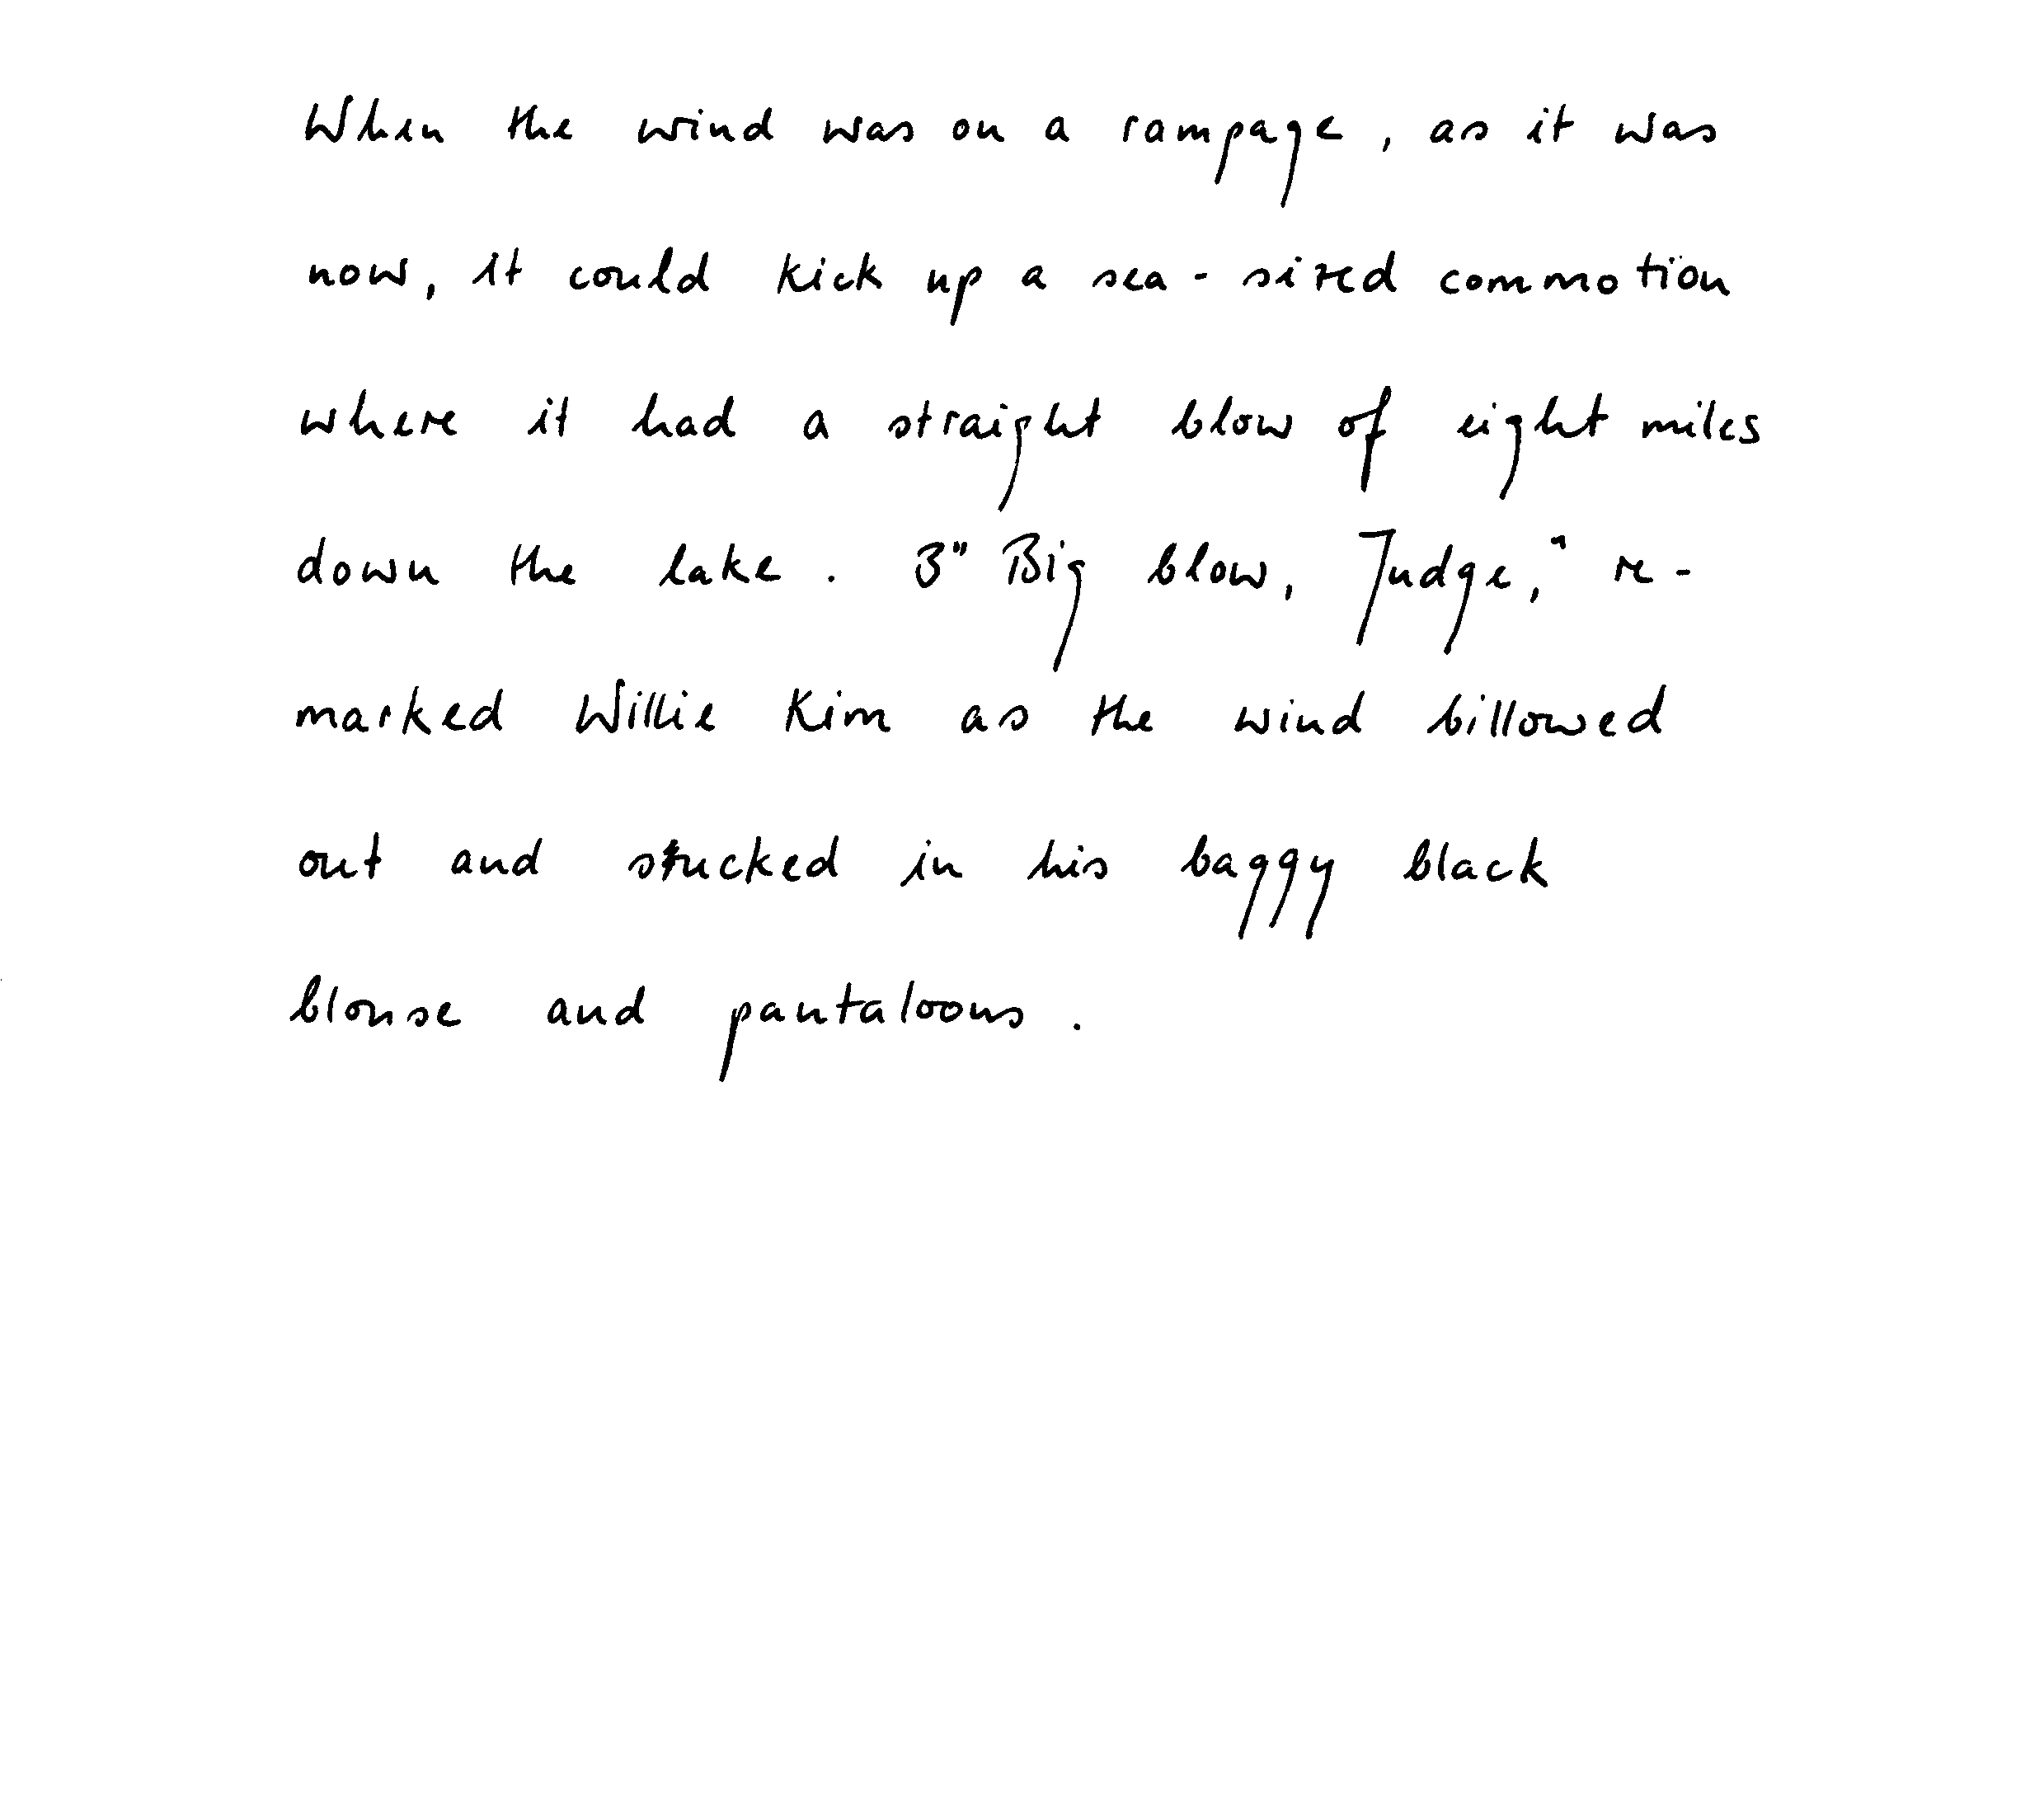 When the wind was on a rampage, as it was
now, it could kick up a sea-sized commotion
where it had a straight blow of eight miles
down the lake. 3" Big blow, Judge," re-
marked Willie Kim as the wind billowed
out and stucked in his baggy black
blouse and pantaloons.